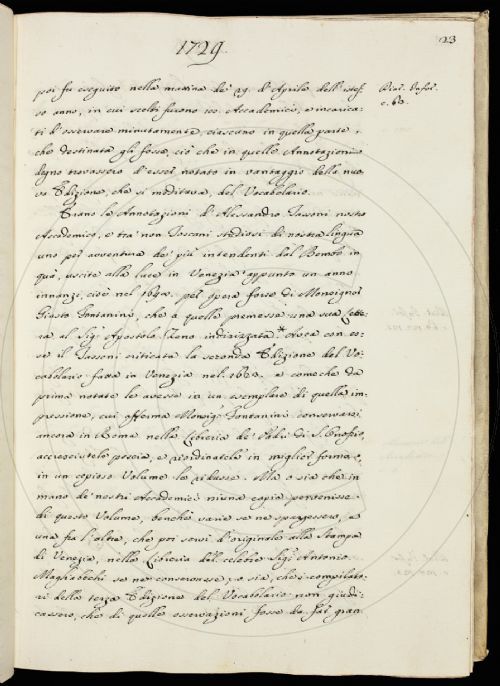 23
1729.
poi fu eseguito nella mattina de' 29. d'Aprile dell'istes-
so anno, in cui scelti furono Accademici, e incarica-
ti d'osservare minutamente, ciascuno in quella parte,
che destinata gli fosse, ciò che in quelle Annotazioni
degno trovassero d'esser notato in vantaggio della nuo-
va Edizione, che si meditava, del Vocabolario.
Diar. Infor.
c. 63.
Erano le Annotazioni d'Alessandro Tassoni nostro
Accademico, e tra' non Toscani studiosi di nostra lingua
uno per avventura de' più intendenti dal Bembo in
quà, uscite alla luce in Venezia appunto un anno
innanzi, cioè nel per opera forse di Monsignor
Giusto Fontanini, che a quelle premesse una sua Lette-
ra al Sigr. Apostolo Zeno indirizzata.* Avea con es-
se il Tassoni criticata la seconda Edizione del Vo-
cabolario fatta in Venezia nel 1623. e comeche da
prima notate le avesse in un esemplare di quella im-
pressione, cui afferma Monsigr. Fontanini conservarsi
ancora in Roma nella Libreria de' Padri di S. Onofrio,
accresciutele poscia, e riordinatele in miglior forma,
in un copioso Volume le ridusse. Ma o sia che in
mano de' nostri Accademici niuna copia pervenisse
di questo Volume, benchè varie se ne spargessero, e
una fra l'altre, che poi servì d'originale alla Stampa
di Venezia, nella Libreria del celebre Sigr. Antonio
Magliabechi se ne conservasse; o sia, che i compilato-
ri della terza Edizione del Vocabolario non giudi-
cassero, che di quelle osservazioni fosse da far gran